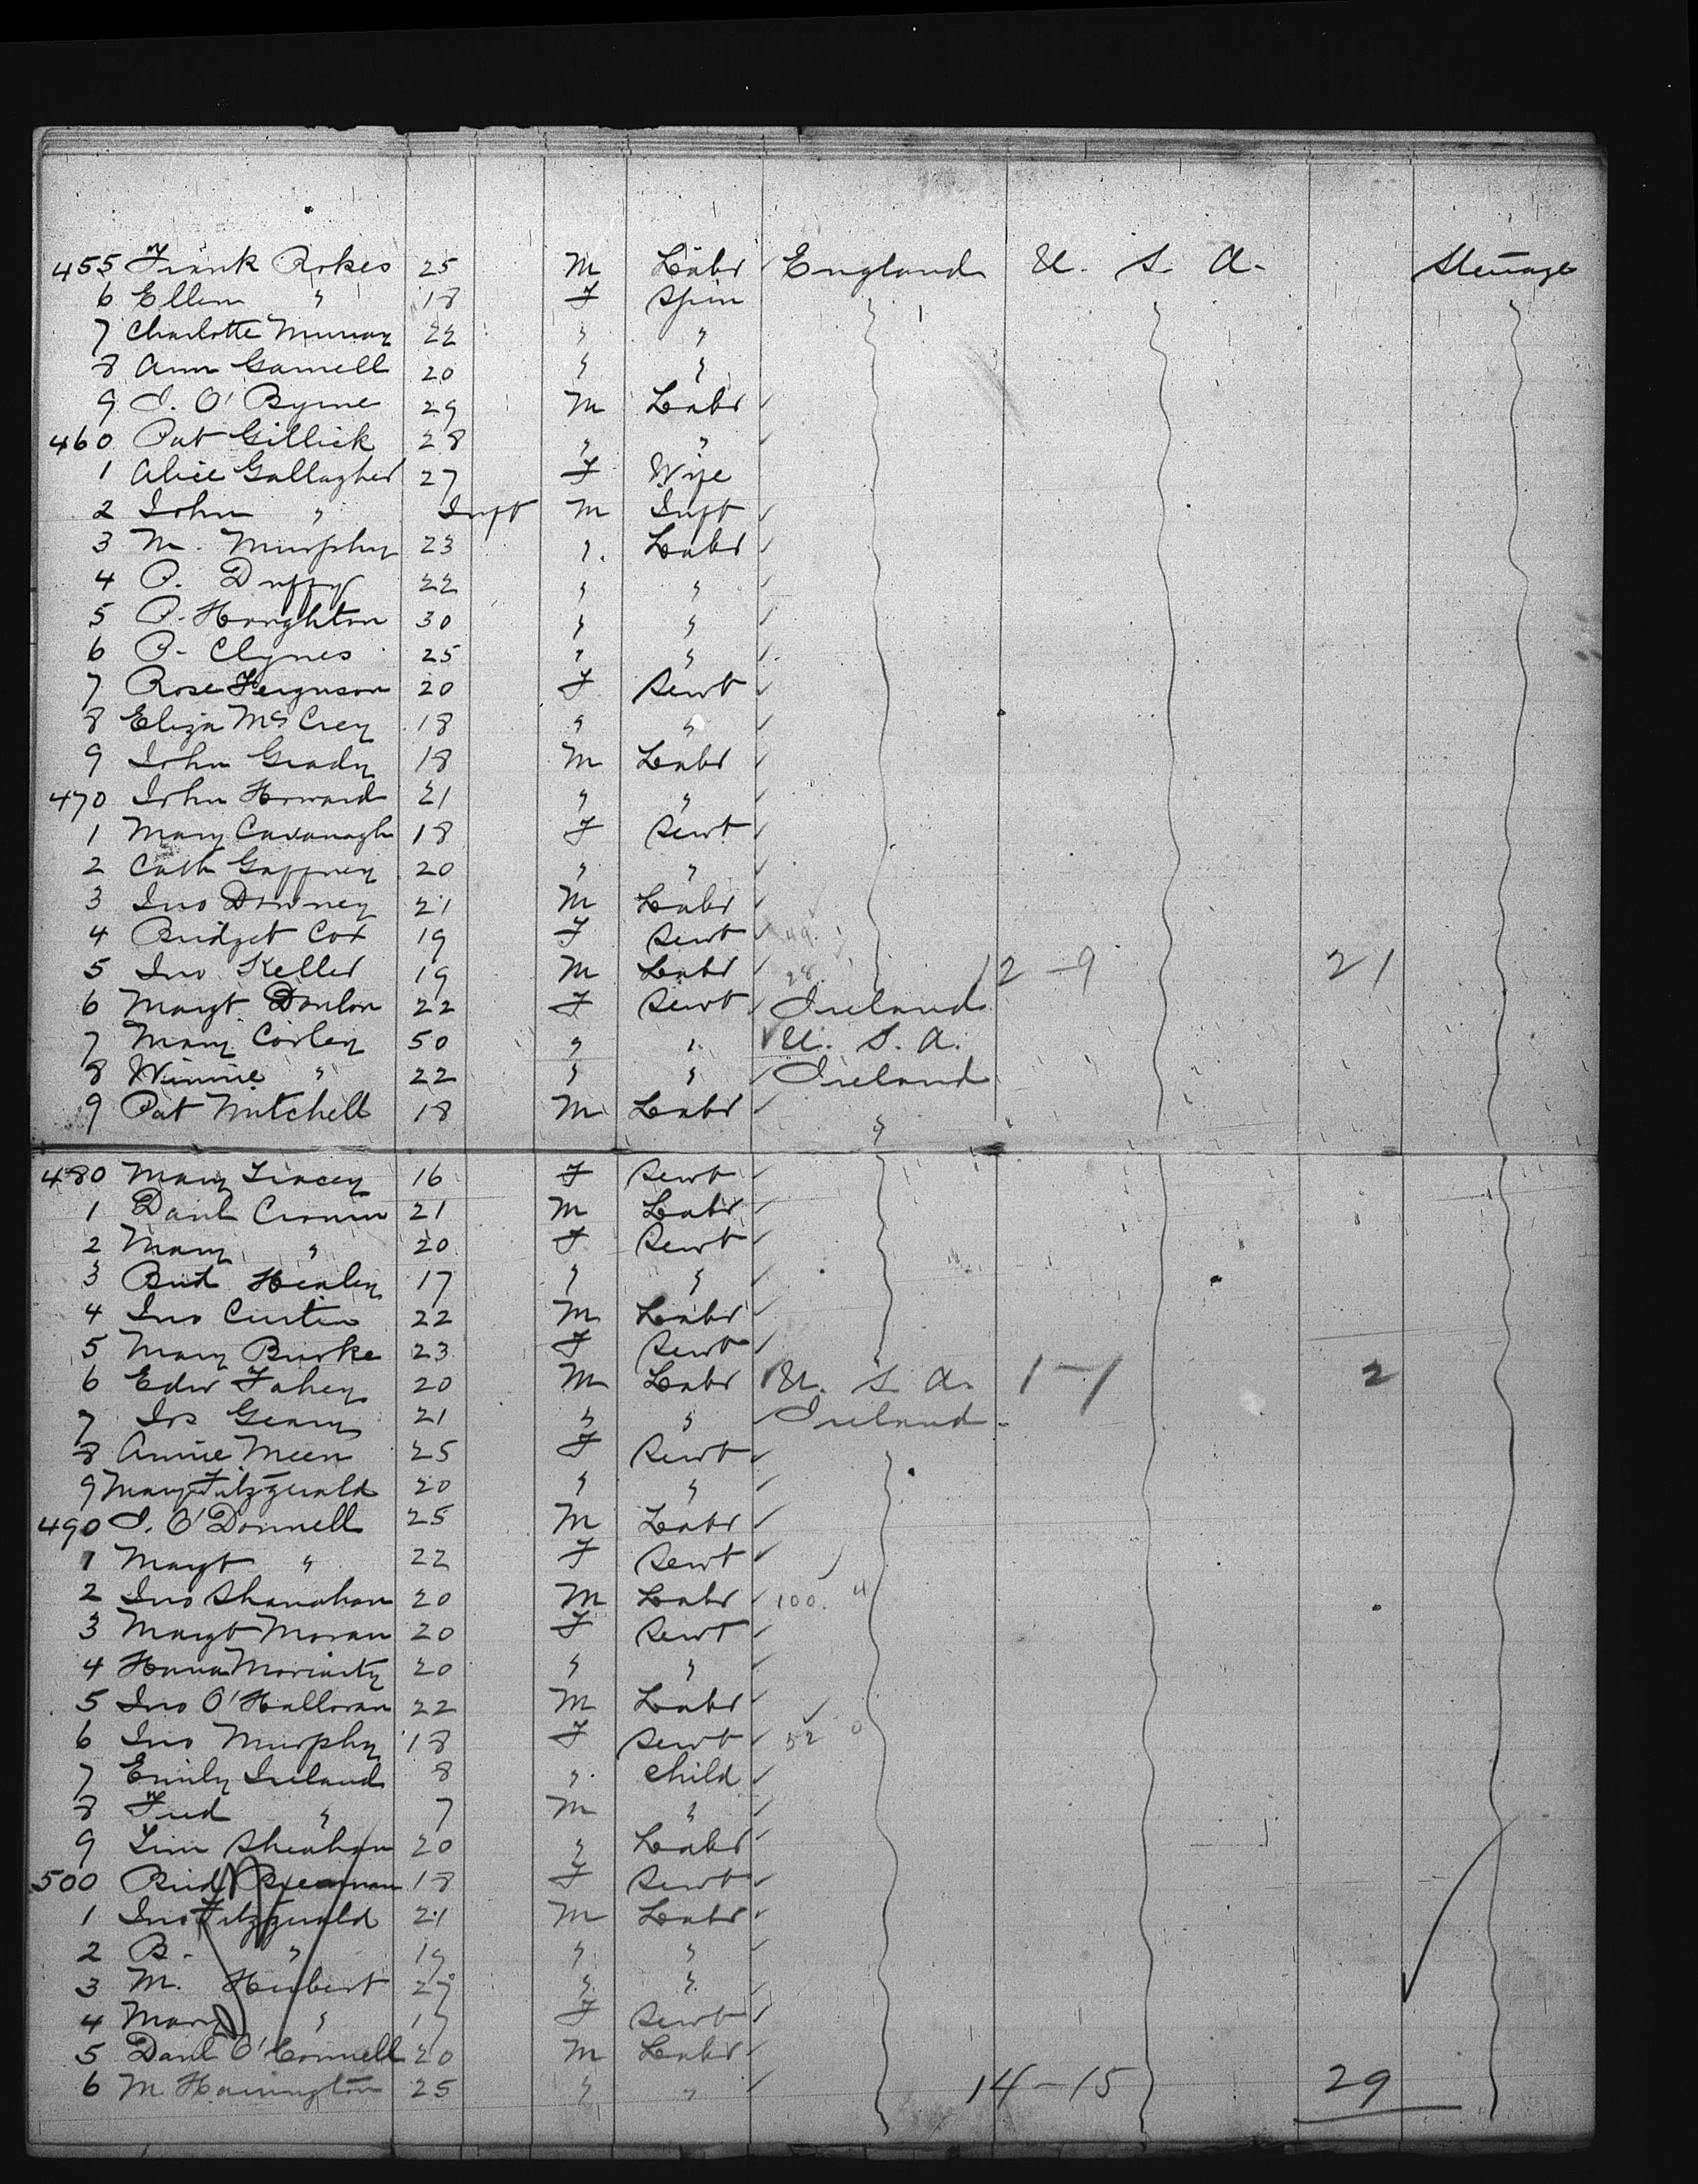 455 Frank Rokes 25 M Labr England U. S. A. Steerage
6 Ellen " 18 F Spin
7 Charlotte Murray 22 " "
8 Ann Gamell 20 " "
9 J. O'Byrne 29 M Labr
460 Pat Gillick 28 " "
1 Alice Gallagher 27 F Wife
2 John " Inft M Inft
3 M. Murphy 23 " Labr
4 P. Duffy 22 " "
5 P. Houghton 30 " "
6 P. Clynes 25 " "
7 Rose Ferguson 20 F Servt
8 Eliza McCrey 18 " "
9 John Grady 18 M Labr
470 John Howard 21 " "
1 Mary Cavanagh 18 F Servt
2 Cath Gaffney 20 " "
3 Jno Downey 21 M Labr
4 Bridget Cox 19 F Servt
5 Jno Keller 19 M Labr 28 12-9 21
6 Margt Donlon 22 F Servt Ireland
7 Mary Corley 50 " " U. S. A.
8 Winnie " 22 " " Ireland
9 Pat Mitchell 18 M Labr "
480 Mary Tracey 16 F Servt
1 Danl Cronin 21 M Labr
2 Mary " 20 F Servt
3 Brid Healey 17 " "
4 Jno Curtin 22 M Labr
5 Mary Burke 23 F Servt
6 Edw Fahey 20 M Labr U. S. A. 1-1 2
7 Jos Geary 21 " " Ireland
8 Annie Meen 25 F Servt
9 Mary Fitzgerald 20 " "
490 J. O'Donnell 25 M Labr
1 Margt " 22 F Servt
2 Jno Shanahan 20 M Labr 100
3 Margt Moran 20 F Servt
4 Hanna Moriarty 20 " "
5 Jno O'Halloran 22 M Labr
6 Jno Murphy 18 F Servt 52
7 Emily Ireland 8 " Child
8 Fred " 7 M "
9 Tim Sheahan 20 " Labr
500 Brid Brennan 18 F Servt
1 Jno Fitzgerald 21 M Labr
2 B. " 19 " "
3 M. Herbert 27 " "
4 Mary " 17 F Servt
5 Danl O'Connell 20 M Labr
6 M. Harrington 25 " " 14-15 29